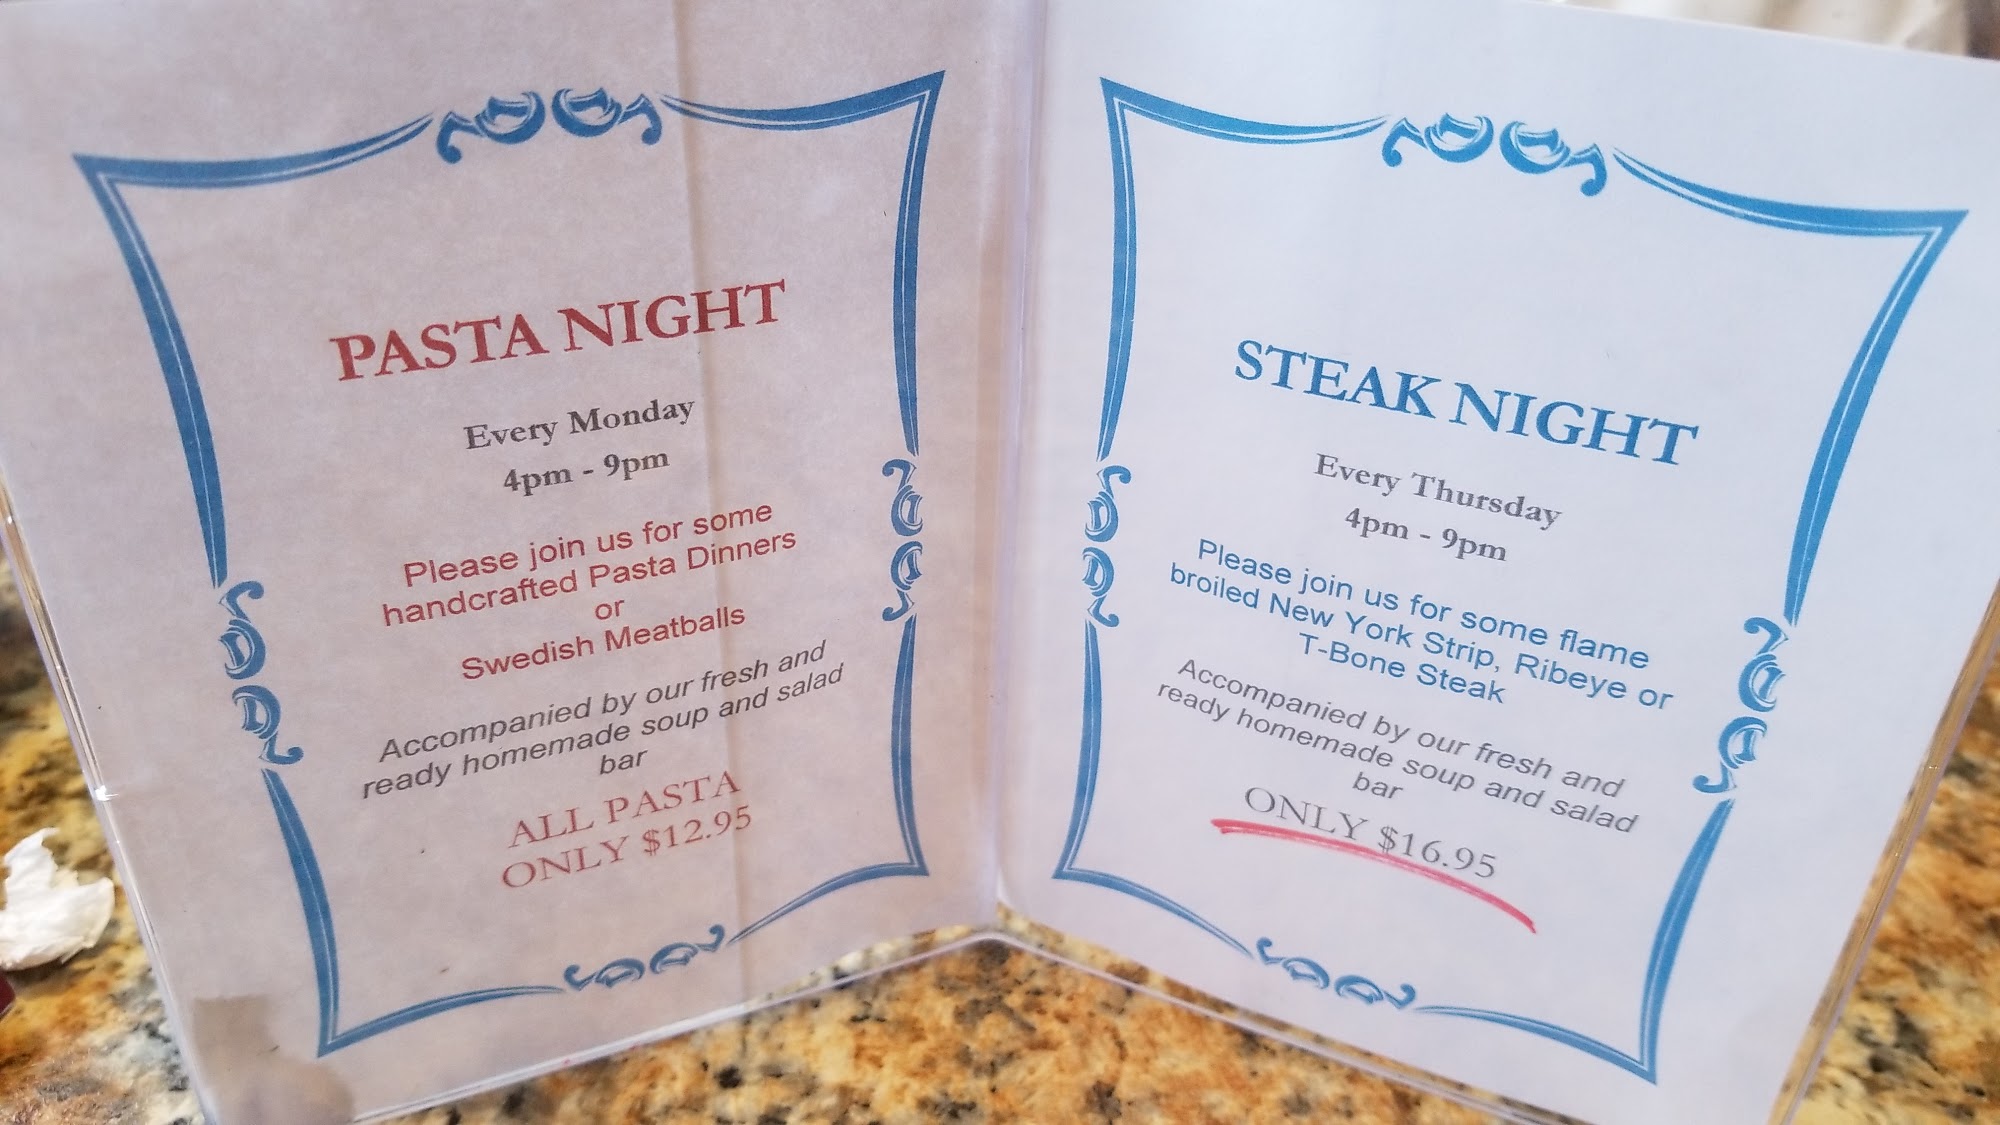 PASTA NIGHT
Every Monday
4pm - 9pm
Please join us for some
handcrafted Pasta Dinners
or
Swedish Meatballs
Accompanied by our fresh and
ready homemade soup and salad
bar
ALL PASTA
ONLY $12.95
STEAK NIGHT
Every Thursday
4pm - 9pm
Please join us for some flame
broiled New York Strip, Ribeye or
T-Bone Steak
Accompanied by our fresh and
ready homemade soup and salad
bar
ONLY $16.95